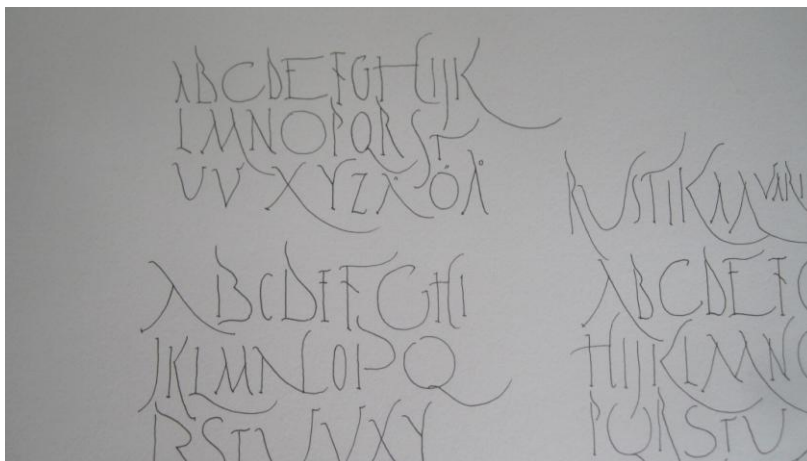 ABCDEFGHIJK
LMNOPQRST
UVXYZÄÖÅ
ABCDEFGHI
JKLMNOPQ
RSTUVXY
RUSTIKAA VARI
ABCDEFG
HIJKLMNO
PQRSTU